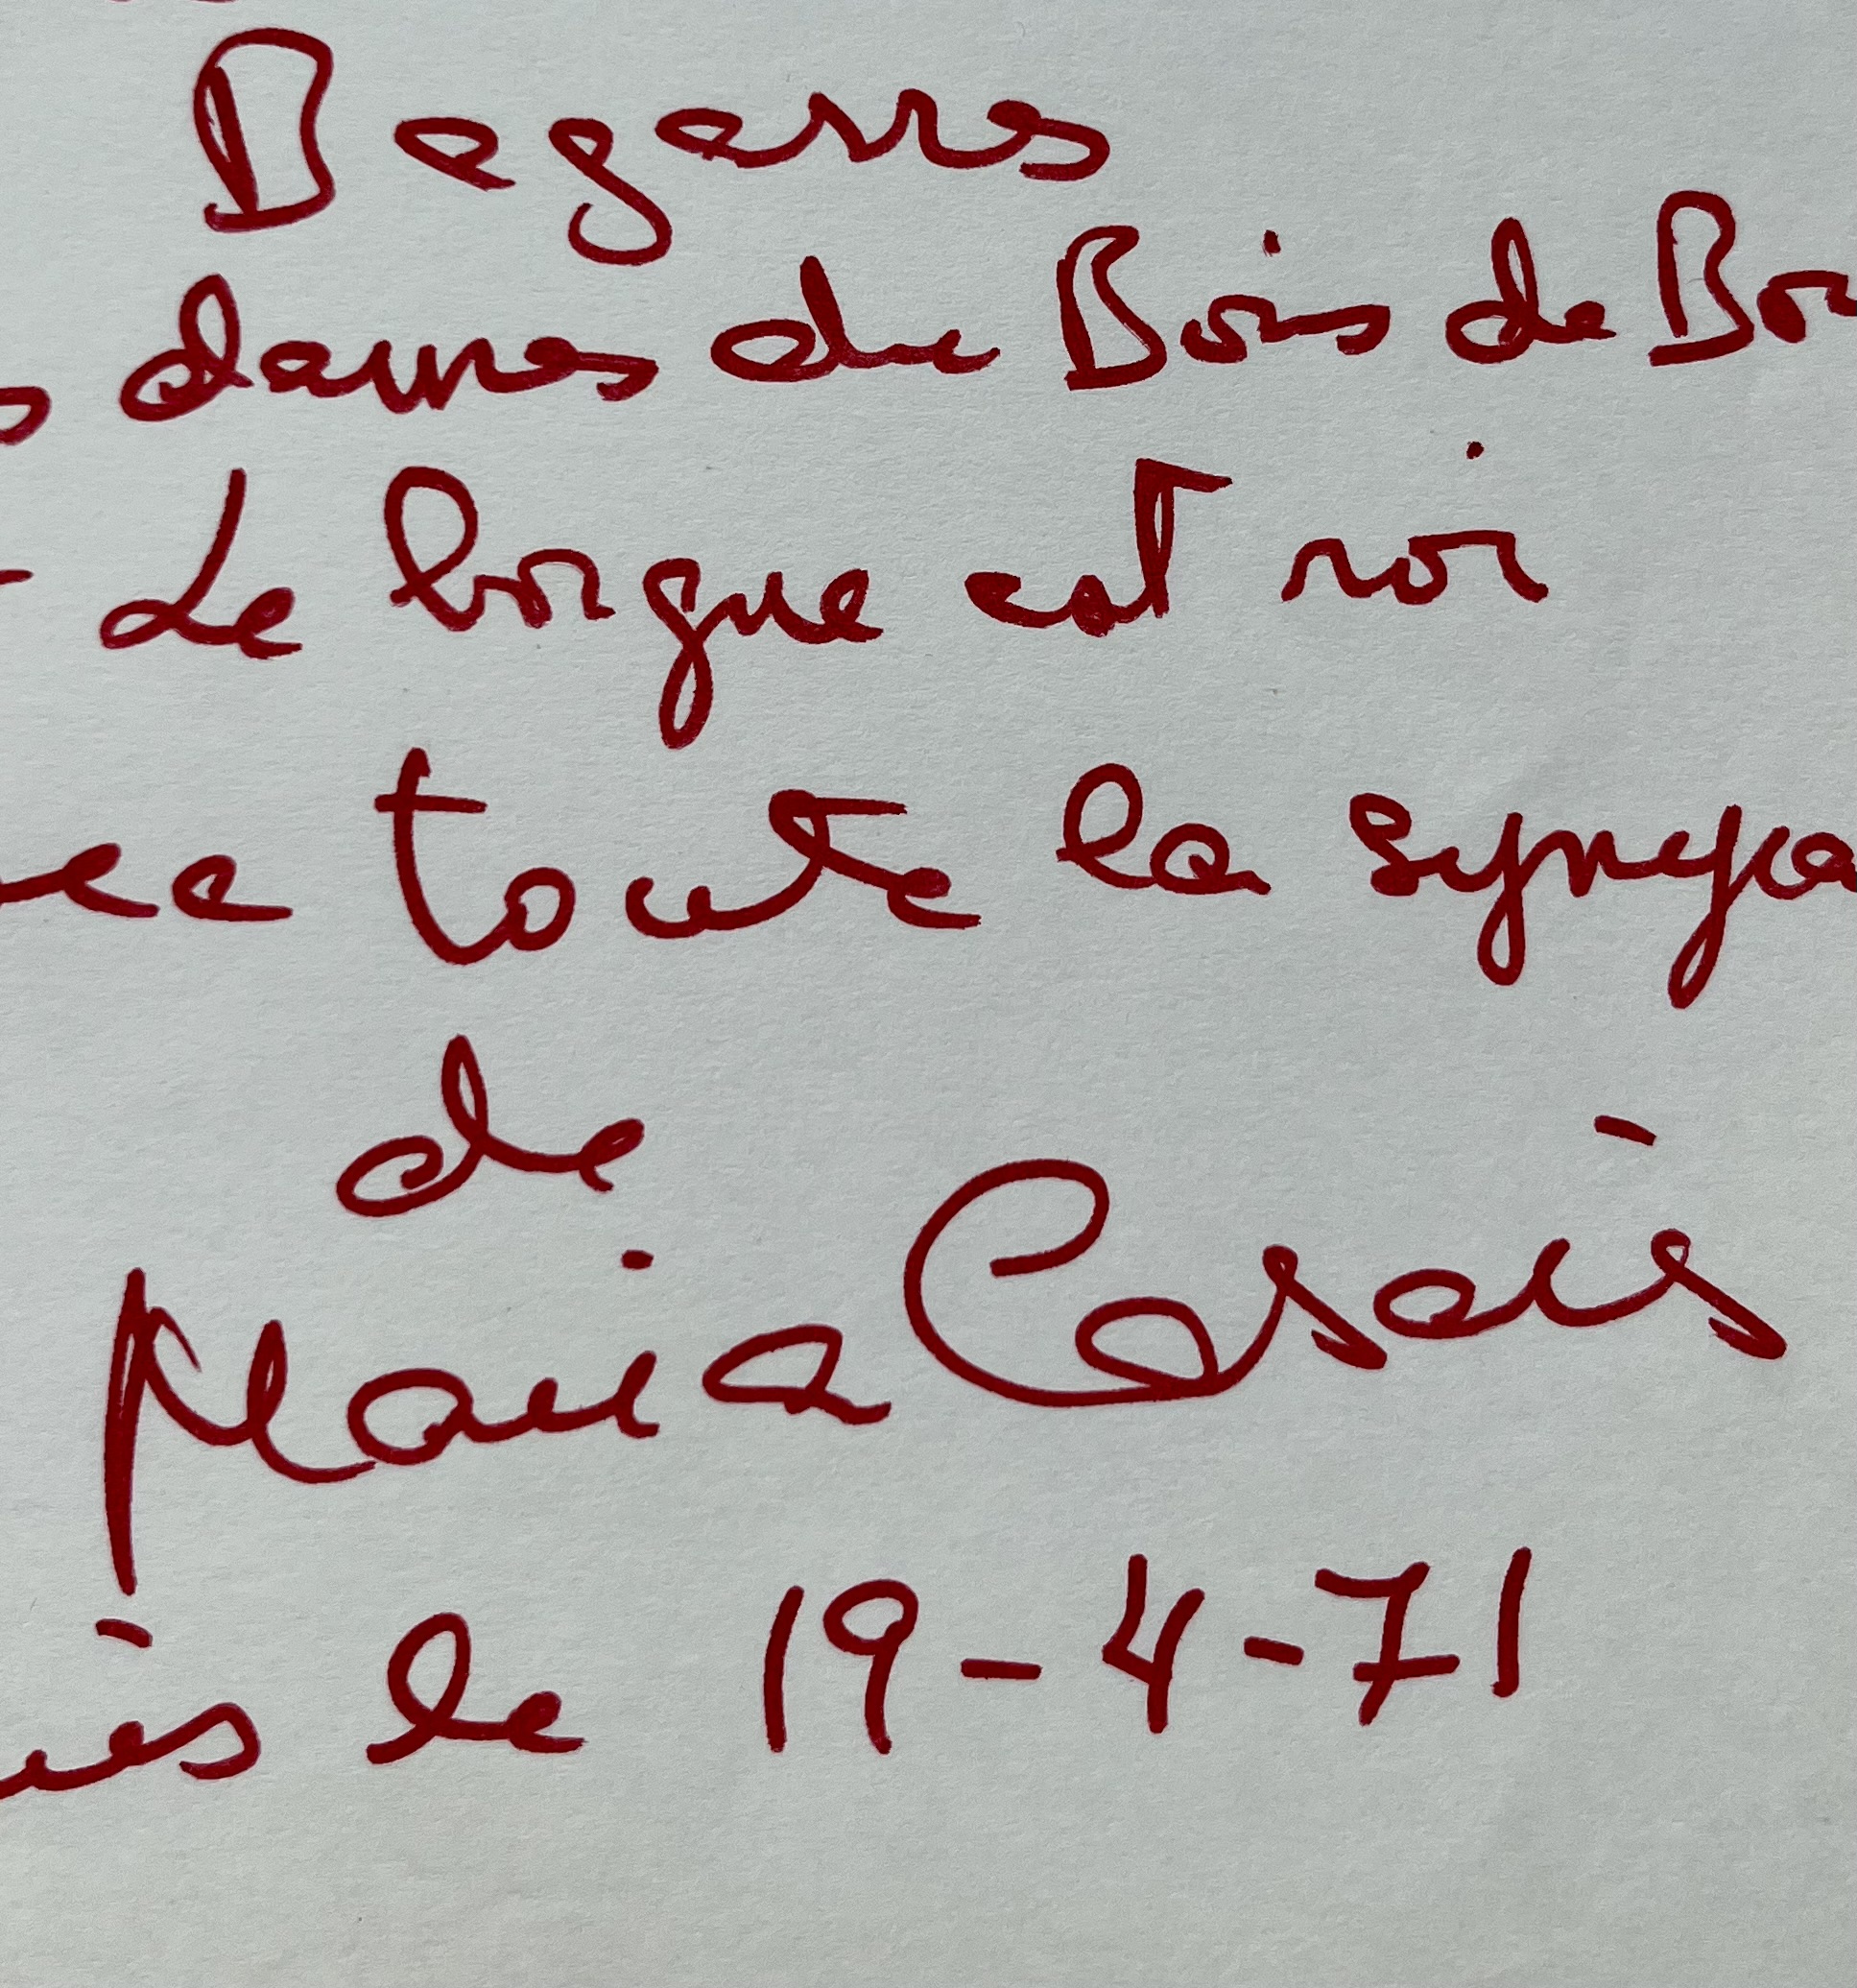 Begarros
dames du Bois de Bou
Le borgne est roi
toute la sympa
de
Maria Casarès
le 19-4-71